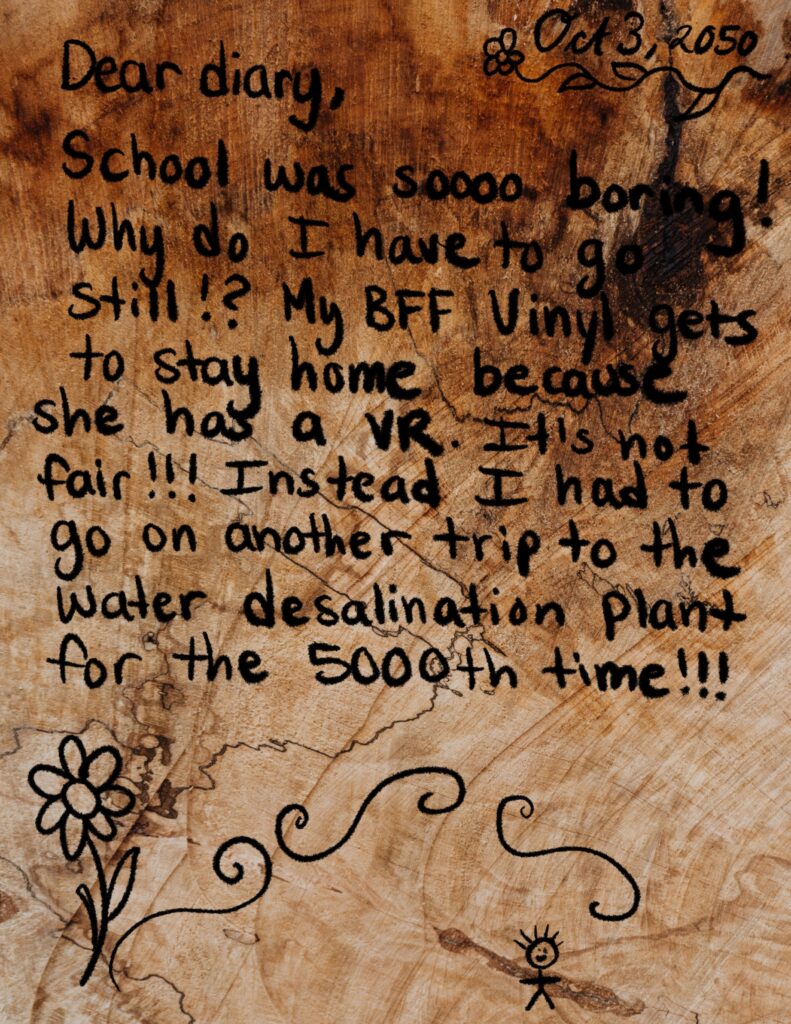 Oct 3, 2050
Dear diary,
School was soooo boring!
Why do I have to go
still!? My BFF Vinyl gets
to stay home because
she has a VR. It's not
fair!!! Instead I had to
go on another trip to the
water desalination plant
for the 5000th time!!!